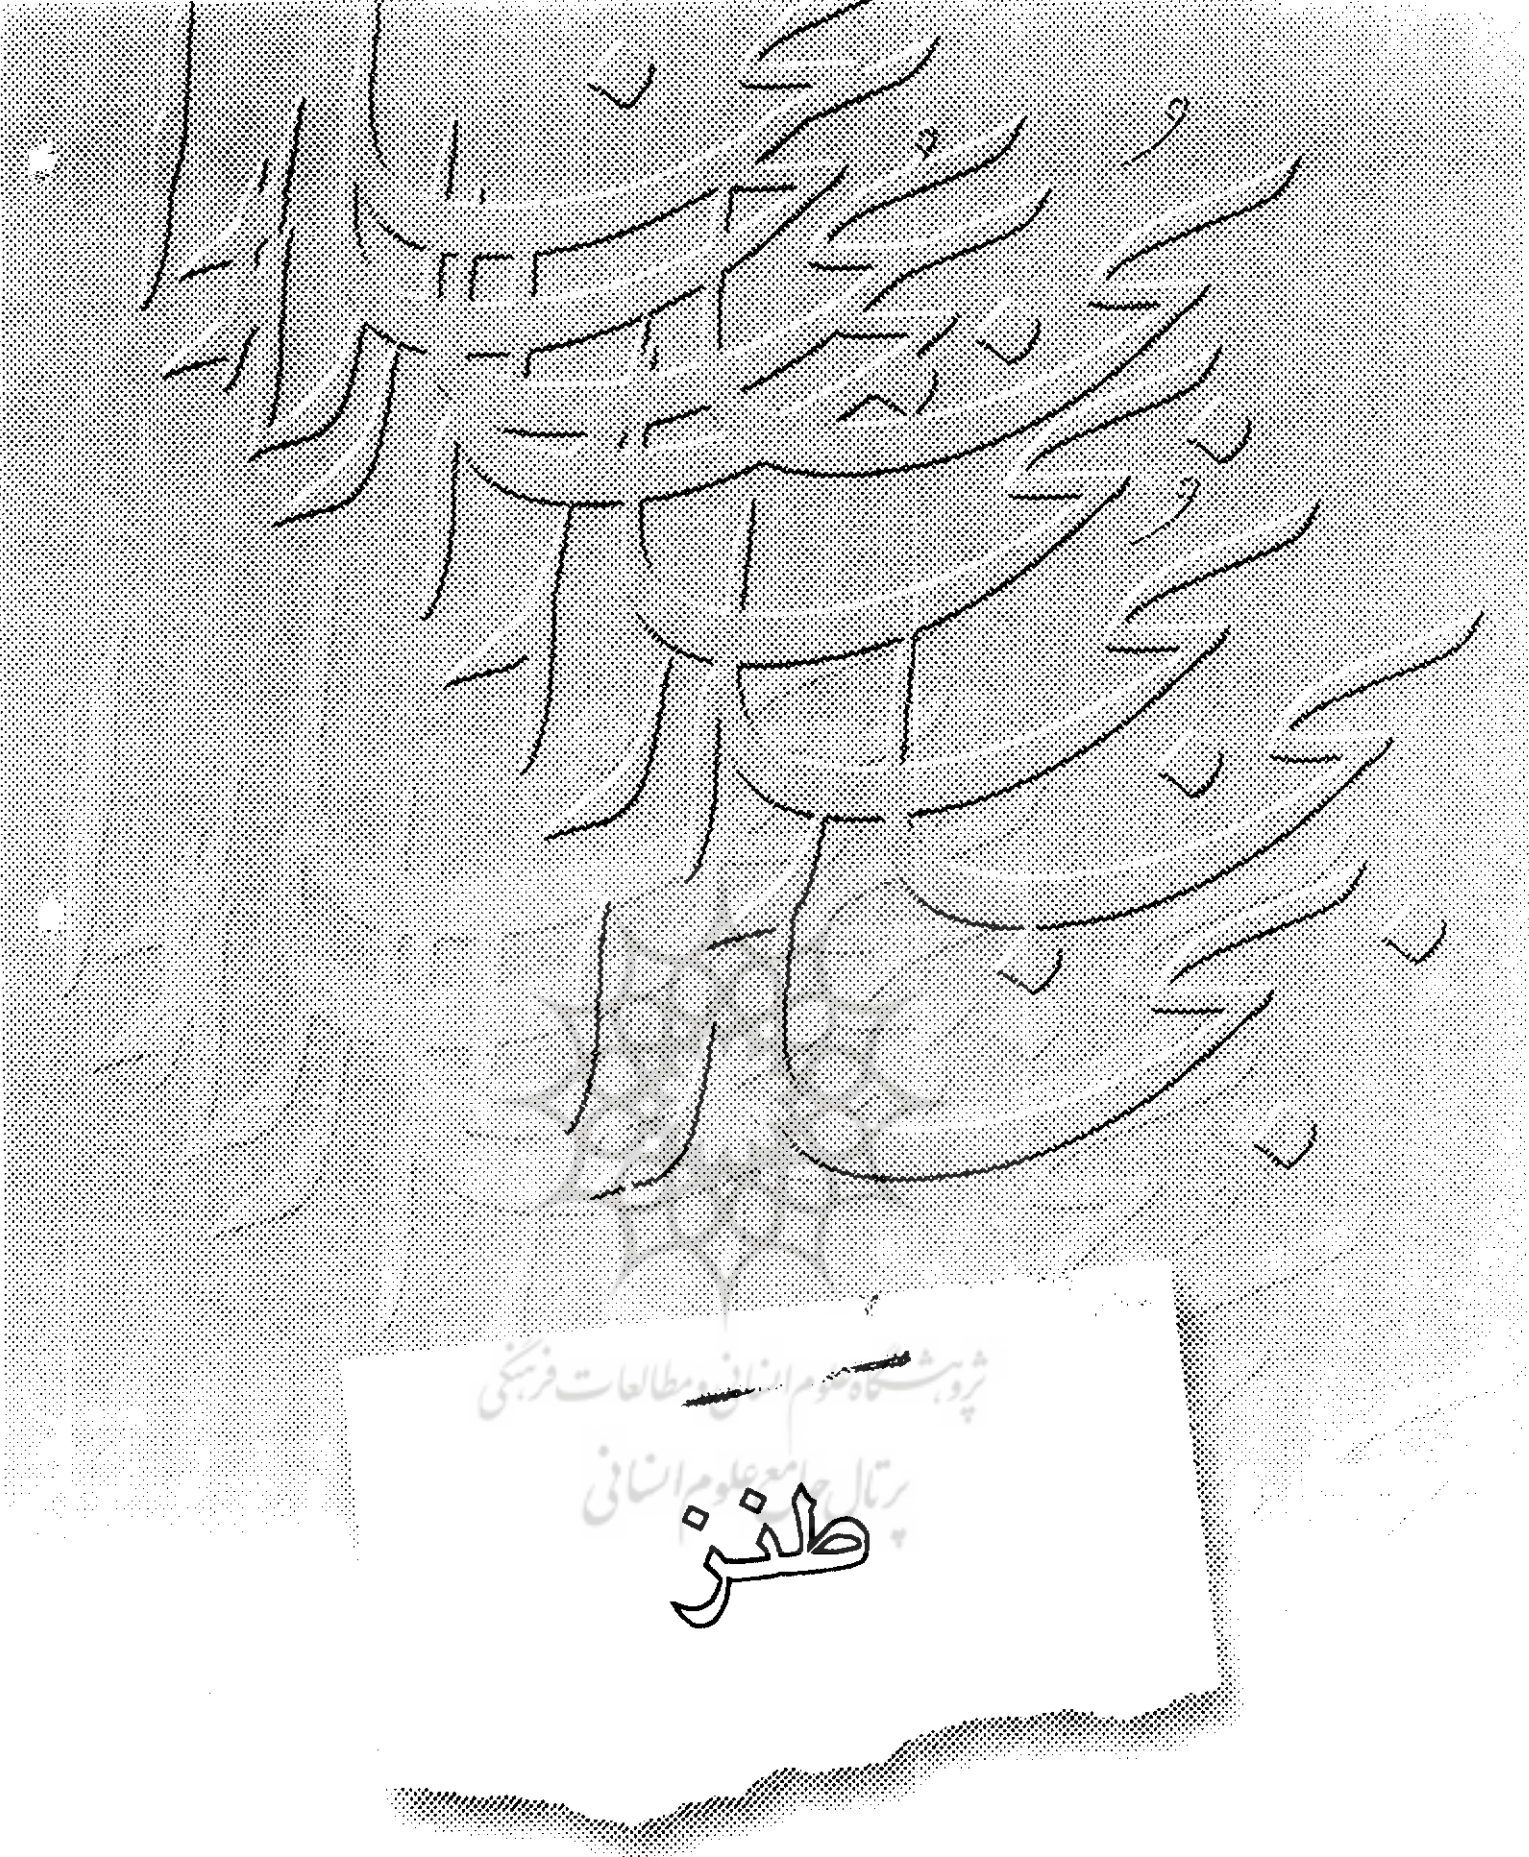 پژوهشگاه علوم انسانی و مطالعات فرهنگی
پرتال جامع علوم انسانی
طنز